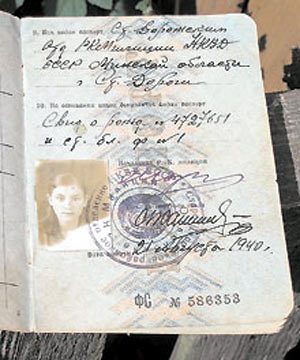 9. Кем выдан паспорт Ст. Дорожским
Р.К. Милиции НКВД
БССР Минской области
г. Ст. Дороги
10. На основании каких документов выдан паспорт
Свид. о рожд. № 4727651
и ст. бл. ф № 1
Начальник милиции
21 августа 1940 г.
ФС № 586353